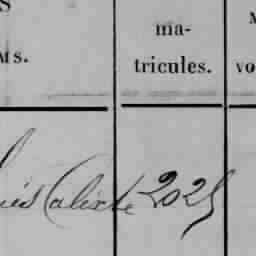 MS.
ma-
tricules.
vo
Calixte 2025